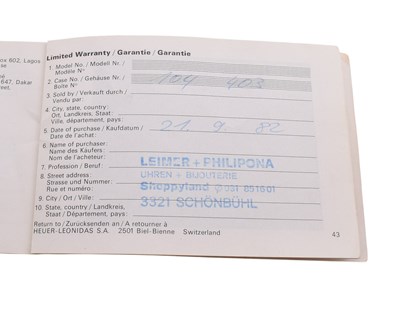 ox 602, Lagos
647, Dakar
Limited Warranty / Garantie / Garantie
1. Model No./ Modell Nr./
Modèle N°
2. Case No./ Gehäuse Nr./
Boîte N°
104 403
3. Sold by / Verkauft durch /
Vendu par:
4. City, state, country:
Ort, Landkreis, Staat:
Ville, département, pays:
5. Date of purchase / Kaufdatum /
Date de l'achat:
21. 9. 82
6. Name of purchaser:
Name des Käufers:
Nom de l'acheteur:
LEIMER + PHILIPONA
7. Profession / Beruf:
UHREN + BIJOUTERIE
8. Street address:
Strasse und Nummer:
Rue et numéro:
Shoppyland 031 851601
9. City / Ort / Ville:
3321 SCHÖNBÜHL
10. State, country / Landkreis,
Staat / Département, pays:
Return to / Zurücksenden an / A retourner à
HEUER-LEONIDAS S.A. 2501 Biel-Bienne Switzerland
43